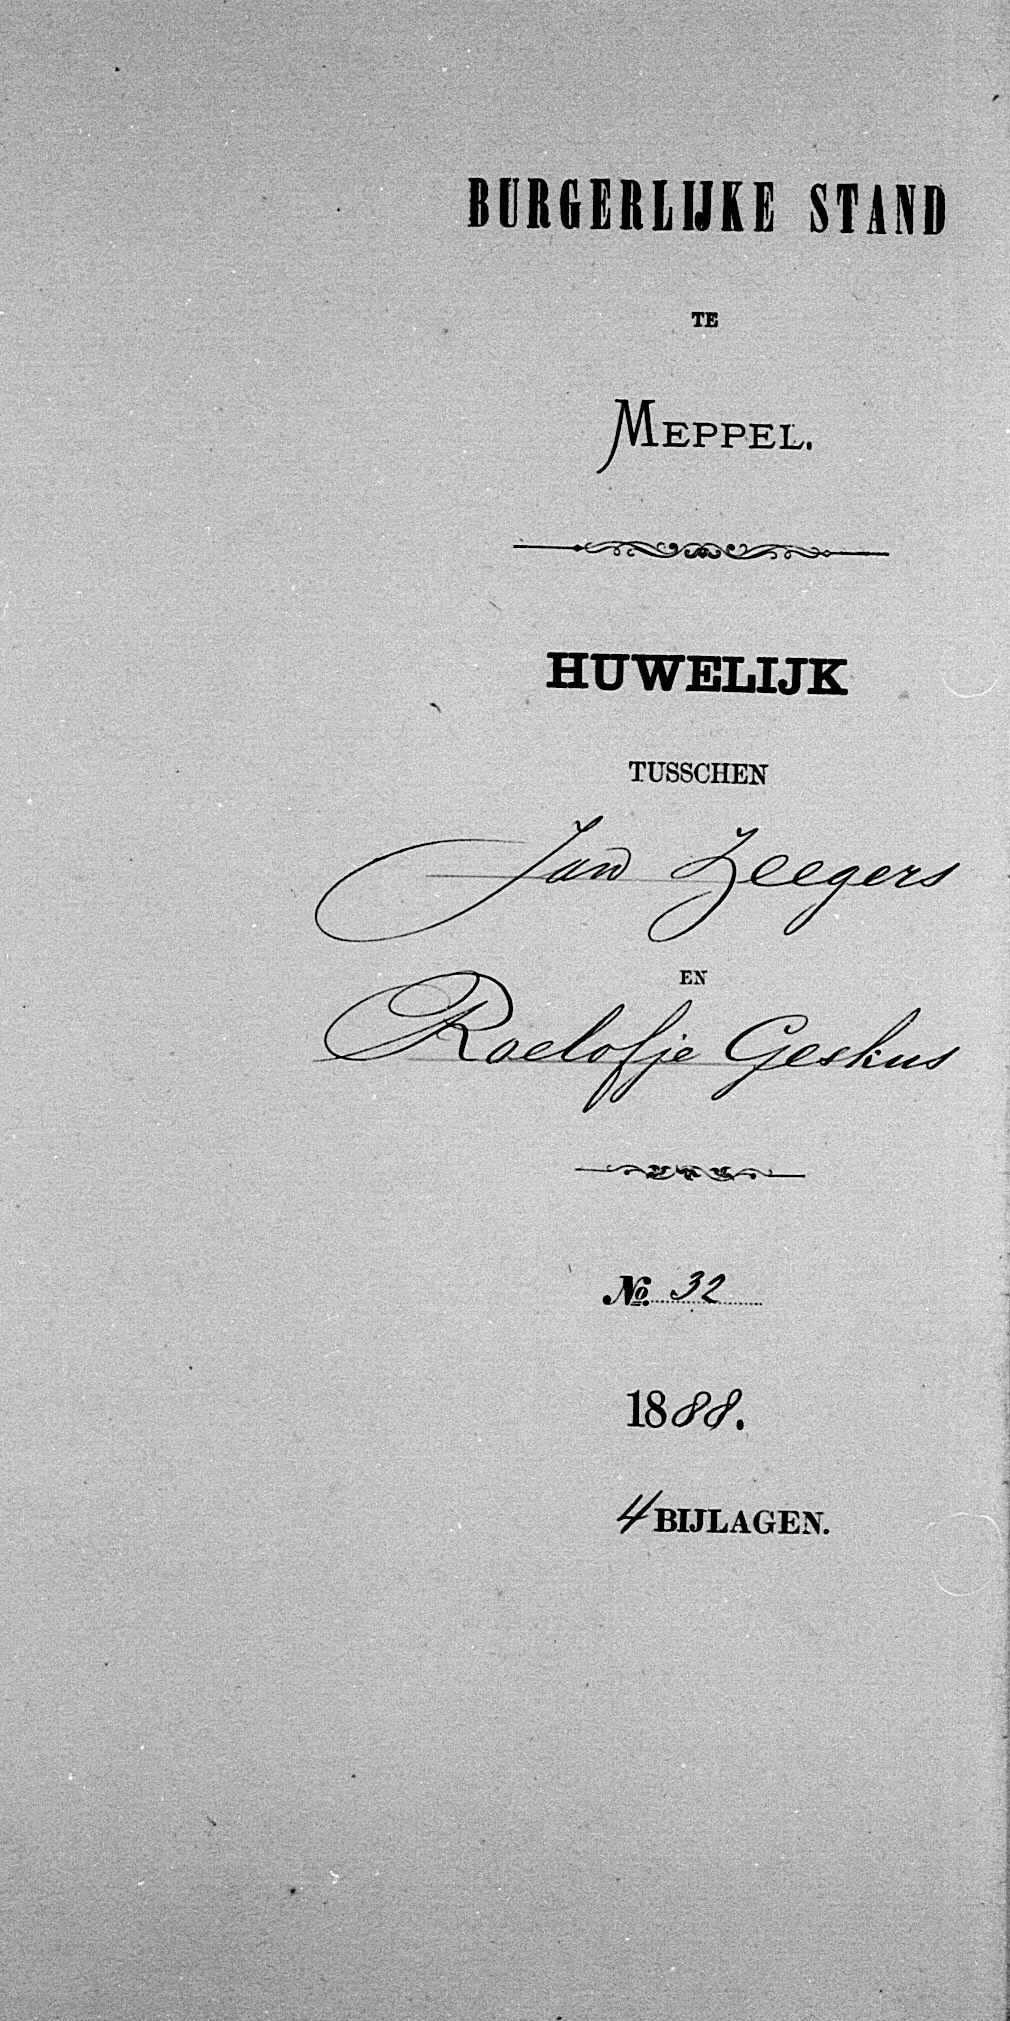 BURGERLIJKE STAND
TE
MEPPEL.
HUWELIJK
TUSSCHEN
Jan Zeegers
EN
Roelofje Geskus
No. 32
1888.
4 BIJLAGEN.